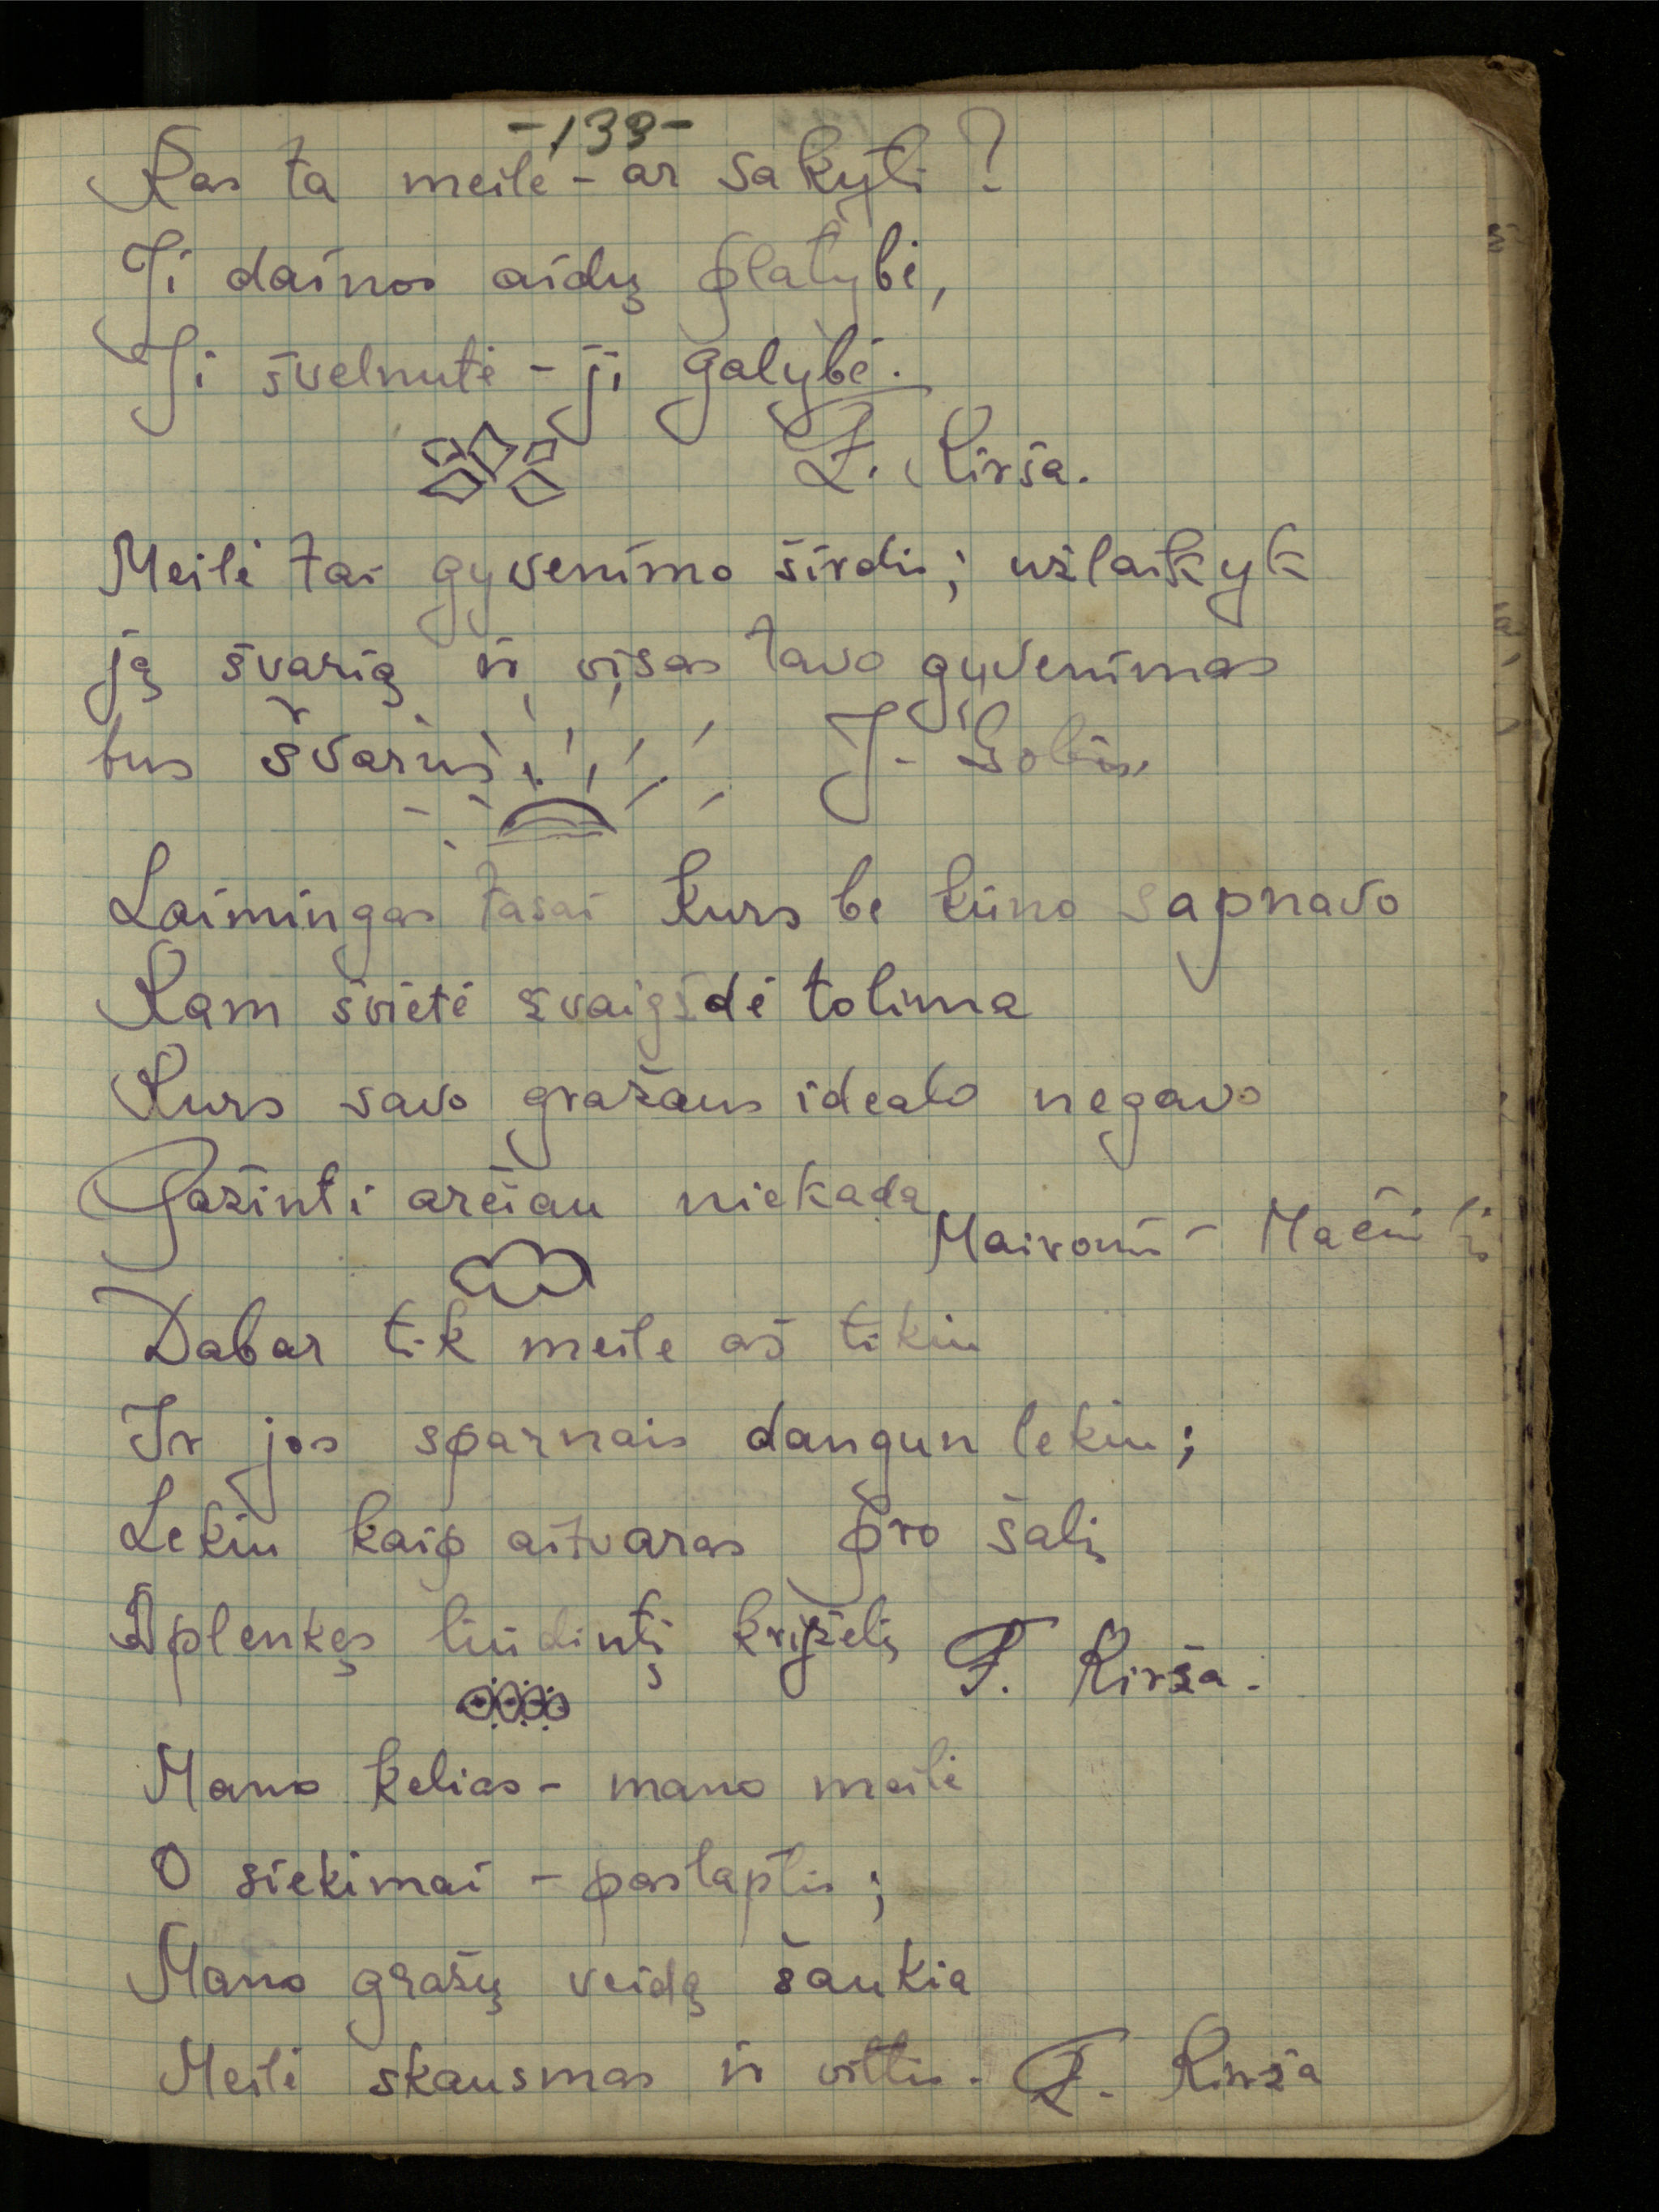 -133-
Kas ta meilė - ar sakyti?
Ji dainos aidų platybė,
Ji švelnutė - ji galybė.
F. Kirša.
Meilė tai gyvenimo širdis; užlaikyk
ją švarią ir visas tavo gyvenimas
bus švarus.
J.
Laimingas tasai kurs be kūno sapnavo
Kam švietė žvaigždė tolima
Kurs savo gražaus idealo negavo
Pažinti arčiau niekada
Maironis - Mačiulis
Dabar tik meile aš tikiu
Ir jos sparnais dangun lekiu;
Lekiu kaip aitvaras pro šalį
Aplenkęs liūdintį kryželį
F. Kirša.
Mano kelias - mano meilė
O siekimai - paslaptis;
Mano gražų veidą šaukia
Meilė skausmas ir viltis. F. Kirša